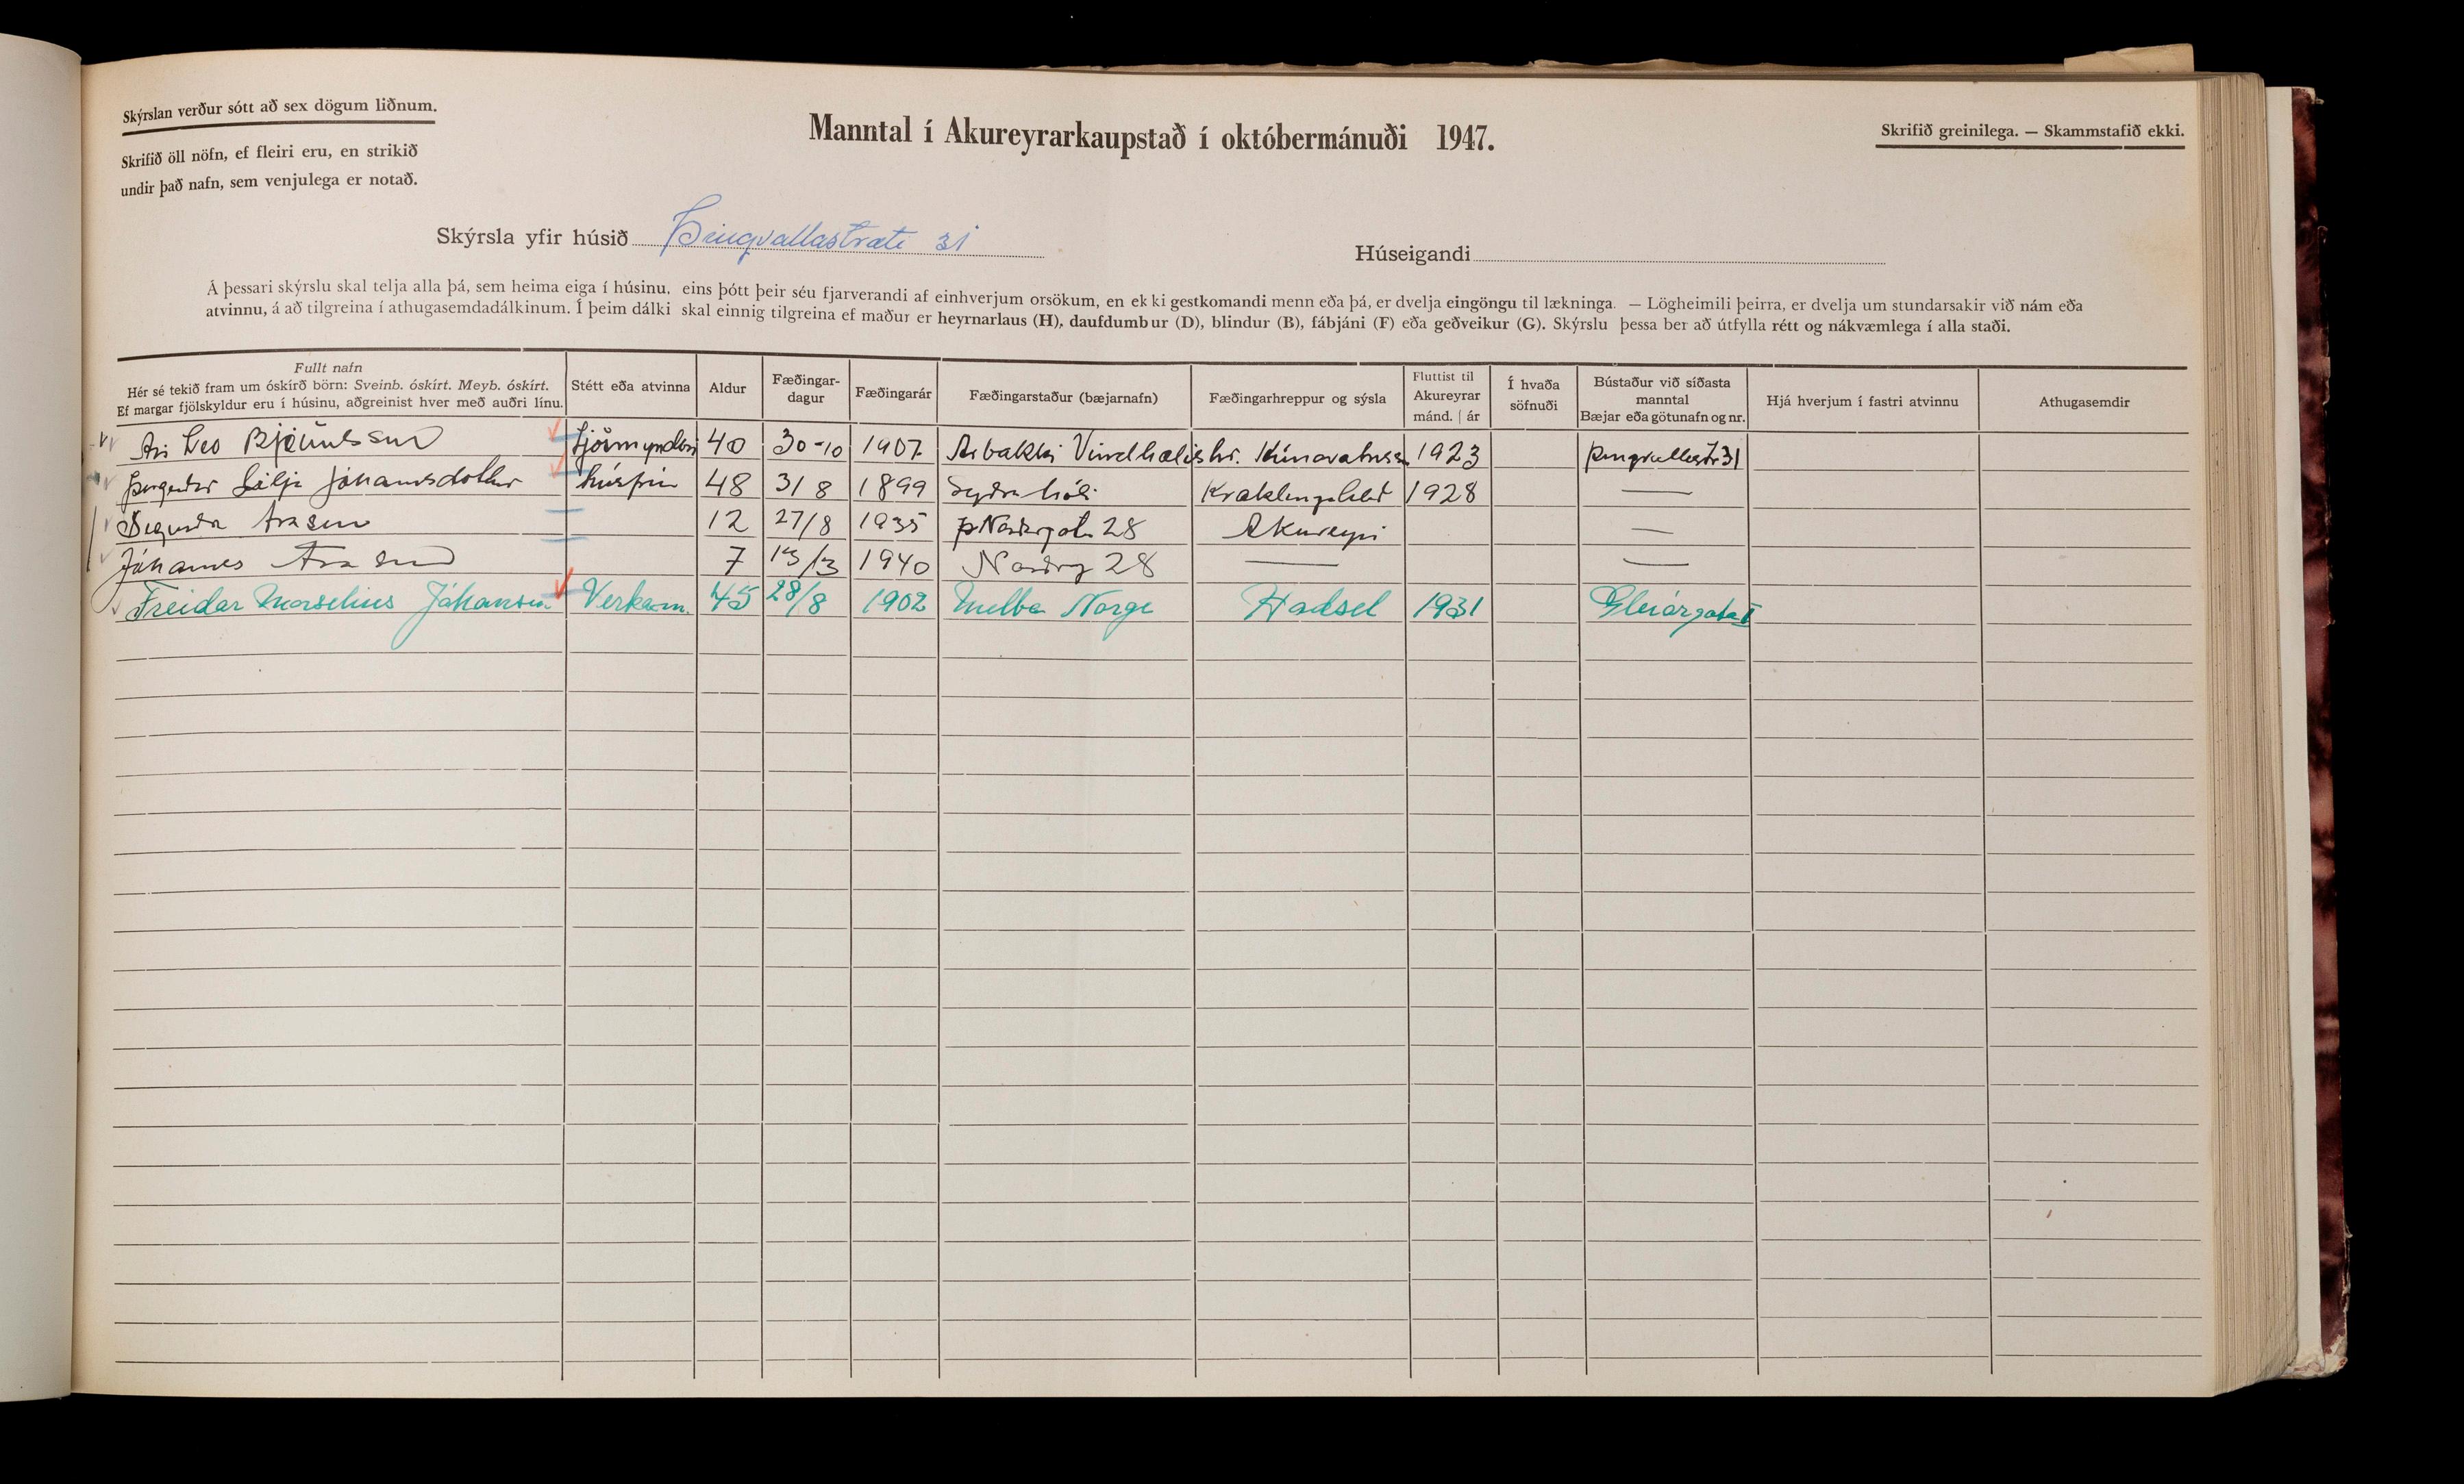 Skýrslan verður sótt að sex dögum liðnum.
Skrifið öll nöfn, ef fleiri eru, en strikið
undir það nafn, sem venjulega er notað.
Manntal í Akureyrarkaupstað í októbermánuði 1947.
Skrifið greinilega. — Skammstafið ekki.
Skýrsla yfir húsið Þingvallastræti 31
Húseigandi
Á þessari skýrslu skal telja alla þá, sem heima eiga í húsinu, eins þótt þeir séu fjarverandi af einhverjum orsökum, en ekki gestkomandi menn eða þá, er dvelja eingöngu til lækninga. — Lögheimili þeirra, er dvelja um stundarsakir við nám eða
atvinnu, á að tilgreina í athugasemdadálkinum. Í þeim dálki skal einnig tilgreina ef maður er heyrnarlaus (H), daufdumbur (D), blindur (B), fábjáni (F) eða geðveikur (G). Skýrslu þessa ber að útfylla rétt og nákvæmlega í alla staði.
Fullt nafn
Hér sé tekið fram um óskírð börn: Sveinb. óskírt. Meyb. óskírt.
Ef margar fjölskyldur eru í húsinu, aðgreinist hver með auðri línu.
Stétt eða atvinna
Aldur
Fæðingar-
dagur
Fæðingarár
Fæðingarstaður (bæjarnafn)
Fæðingarhreppur og sýsla
Fluttist til
Akureyrar
mánd. | ár
Í hvaða
söfnuði
Bústaður við síðasta
manntal
Bæjar eða götunafn og nr.
Hjá hverjum í fastri atvinnu
Athugasemdir
Ari Leo Björnsson 40 30-10 1907 Árbakki Vindhælishr. 1923 Þingvallastr 31
Þorgerður Lilja Jóhannsdottur húsfrú 48 31 8 1899 Syðra hóli 1928 —
Arason 12 27/8 1935 28 Akureyri —
Jóhannes Arason 7 13/3 1940 28 — —
Freidar Marselius Jóhansen Verkam. 45 28/8 1902 Melbu Norge Hadsel 1931